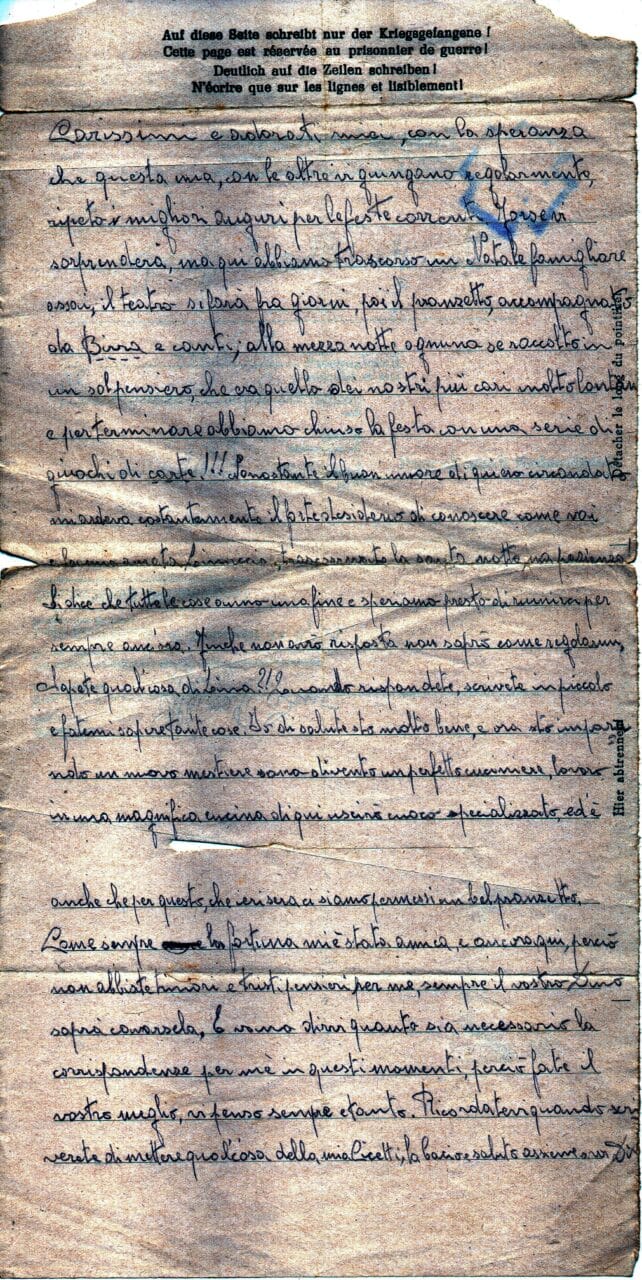 Auf diese Seite schreibt nur der Kriegsgefangene!
Cette page est réservée au prisonnier de guerre!
Deutlich auf die Zeilen schreiben!
N'écrire que sur les lignes et lisiblement!
Carissimi e adorati miei, con la speranza
che questa mia, con le altre vi giungano regolarmente,
ripeto i migliori auguri per le feste correnti. Forse vi
sorprenderà, ma qui abbiamo trascorso un Natale famigliare
assai, il teatro si farà fra giorni, poi il pranzetto, accompagnato
da Birra e canti, alla mezza notte ognuno se raccolto in
un sol pensiero, che era quello dei nostri più cari molto lontani
e per terminare abbiamo chiuso la festa con una serie di
giuochi di carte!!! Nonostante il buon umore di qui ero circondato
mi ardeva costantemente il forte desiderio di conoscere come voi
e la mia amata trascorrevate la santa notte ma pazienza!
Si dice che tutte le cose anno una fine e speriamo presto di riunirci per
sempre ancora. Finche non avrò risposta non saprò come regolarmi,
Sapete qual'cosa di Lina?!? Quando rispondete, scrivete in piccolo
e fatemi sapere tante cose. Io di salute sto molto bene, e ora sto impara
ndo un nuovo mestiere sono divento un perfetto cuciniere, lavoro
in una magnifica cucina di qui uscirò cuoco specializzato, ed è
anche che per questo, che ieri sera ci siamo permessi un bel pranzetto.
Come sempre la fortuna mi è stata amica, e ancora qui, perciò
non abbiate timori e tristi pensieri per me, sempre il vostro Dino
saprà cavarsela, E vano dirvi quanto sia necessario la
corrispondenze per me in questi momenti, perciò fate il
vostro meglio, vi penso sempre e tanto. Ricordatevi quando scri
verete di mettere qual'cosa della mia la bacio e saluto assieme a voi
Détacher le long du pointillé
Hier abtrennen!